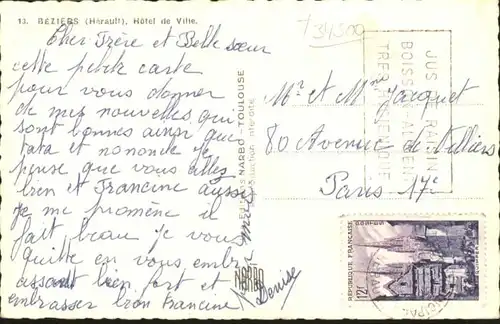 13. BÉZIERS (Hérault), Hôtel de Ville.
34500
Cher Frère et Belle sœur
cette petite carte
pour vous donner
de mes nouvelles qui
sont bonnes ainsi que
tata et nononde je
pense que vous allez
bien et Francine aussi
je me promène il
fait beau je vous
quitte en vous embr
assant bien fort et
embrasser bien Francine
Denise
NARBO
NARBO - TOULOUSE
Mr et Mme Jacquet
80 Avenue de Villiers
Paris 17e
JUS DE RAISIN
BOISSON
TRES
REPUBLIQUE FRANÇAISE
POSTES
12f